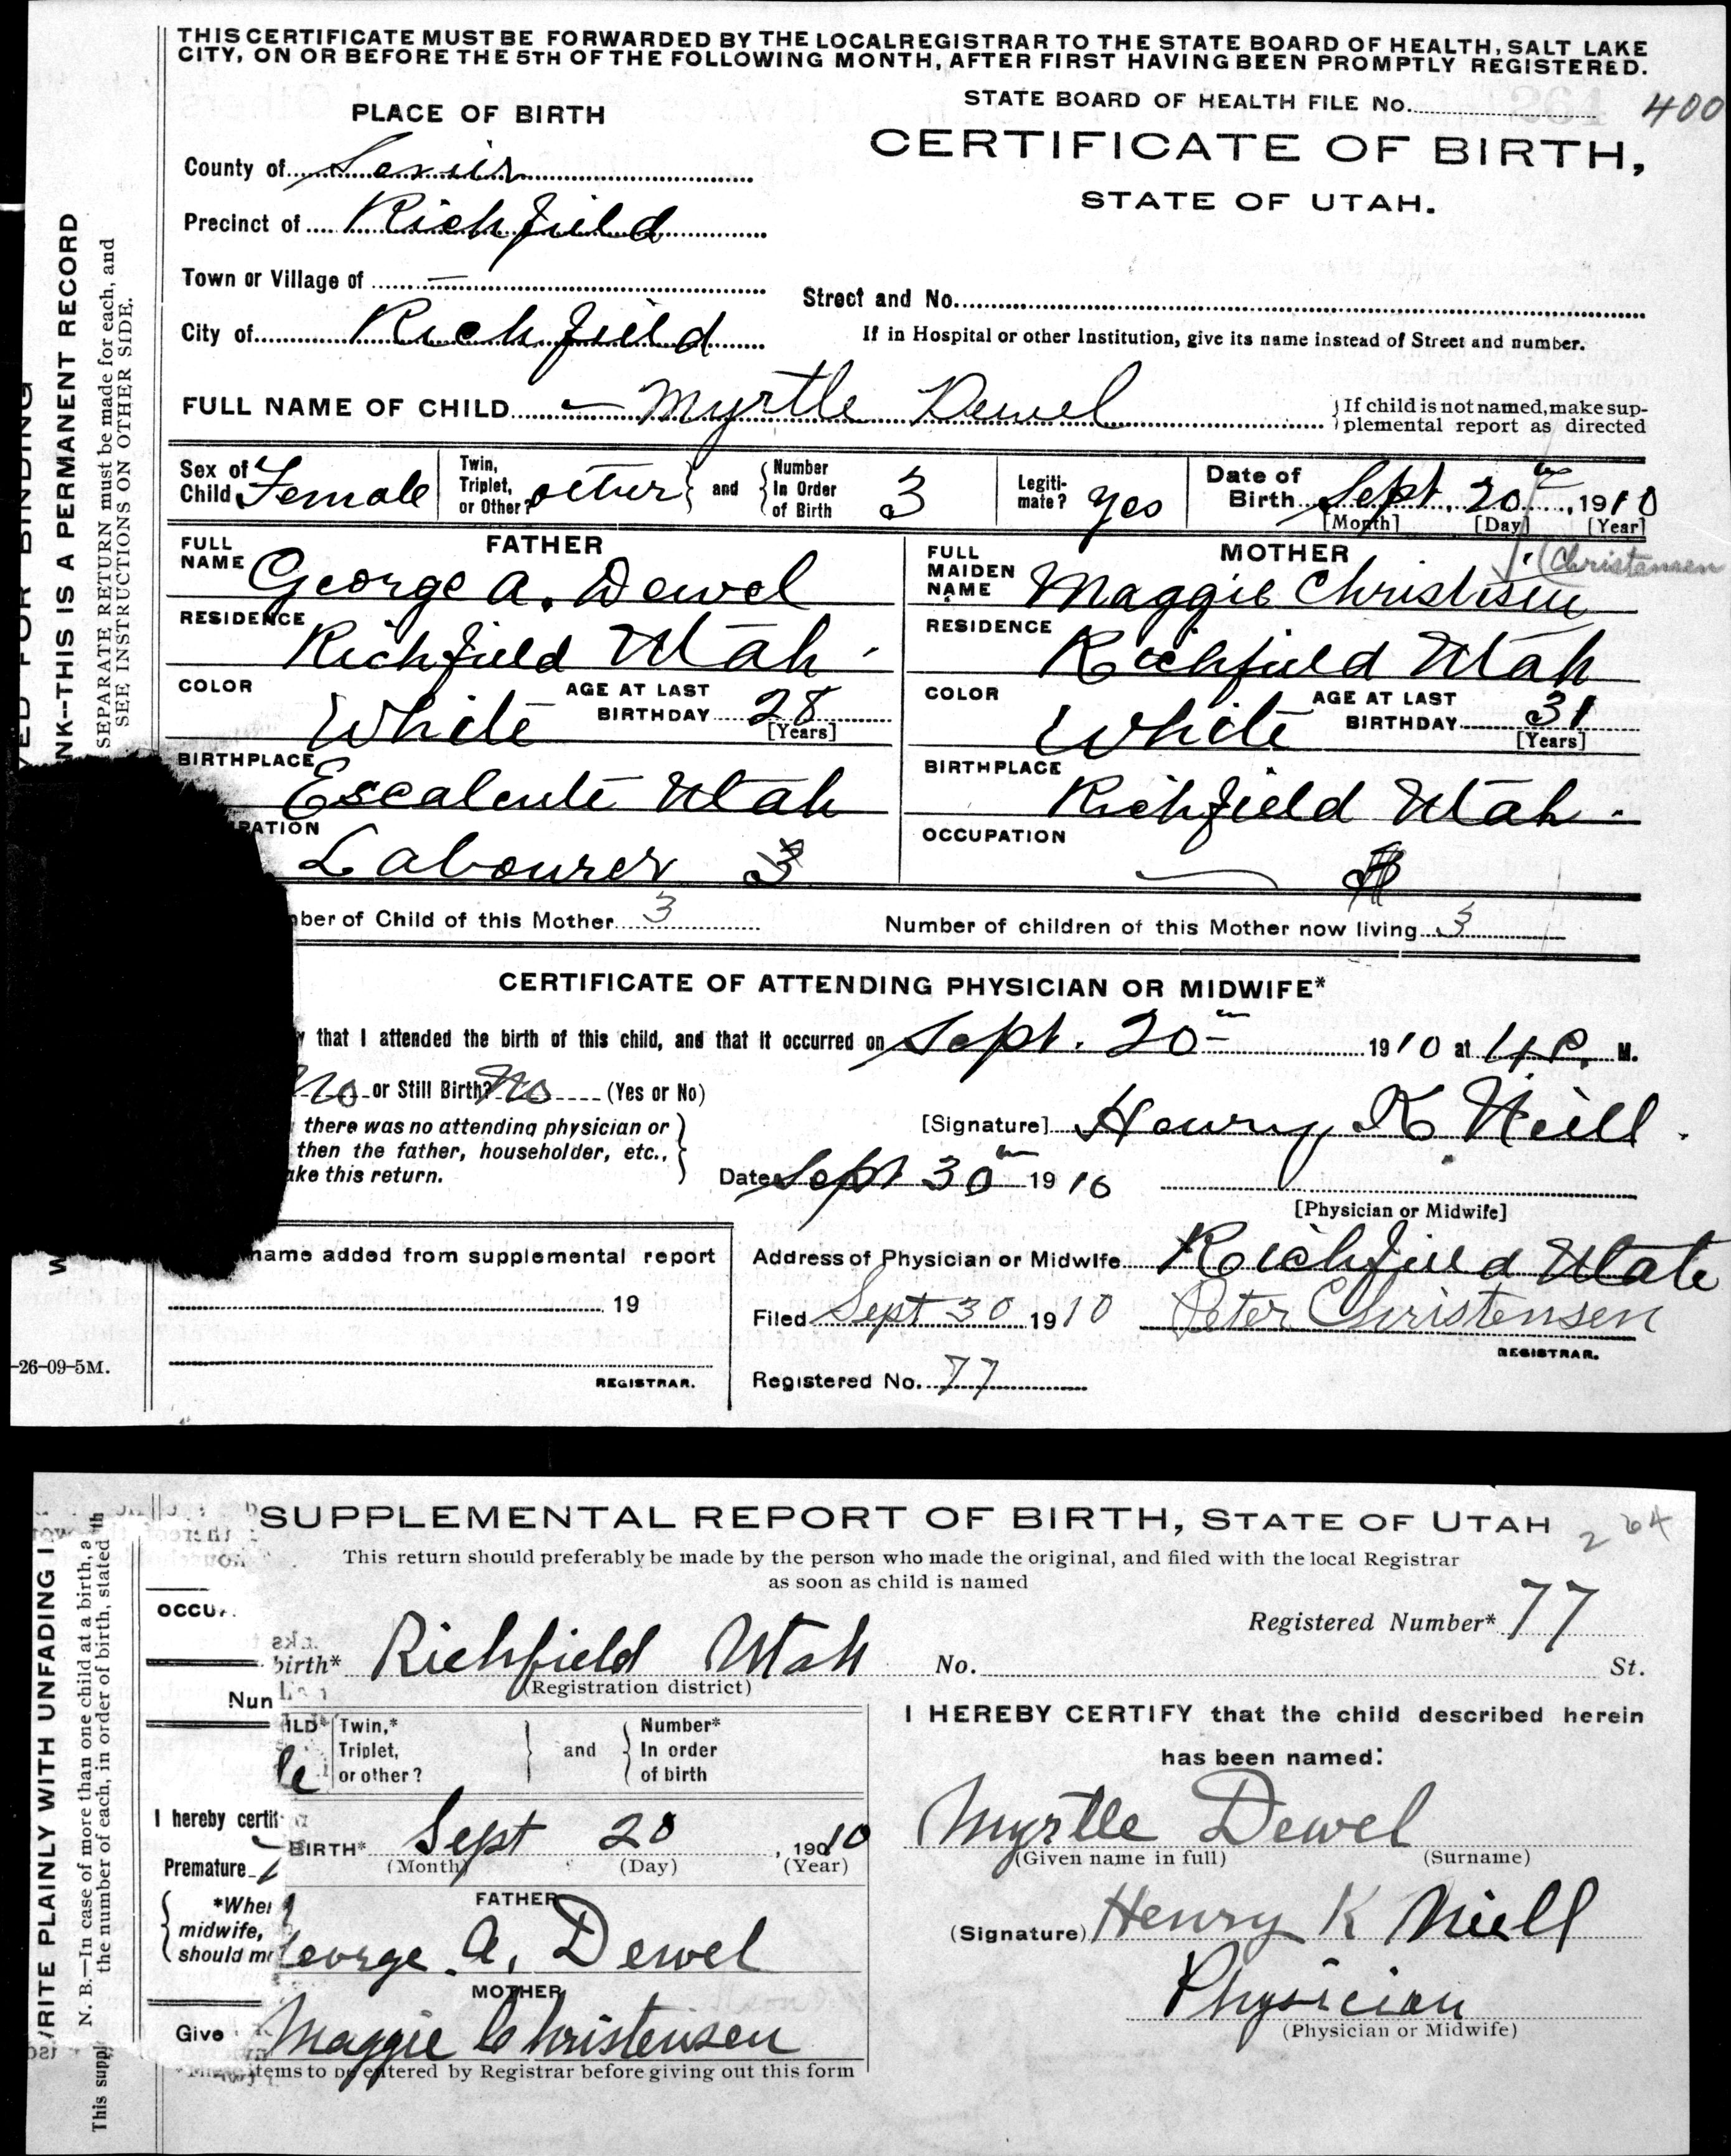 THIS CERTIFICATE MUST BE FORWARDED BY THE LOCAL REGISTRAR TO THE STATE BOARD OF HEALTH, SALT LAKE
CITY, ON OR BEFORE THE 5TH OF THE FOLLOWING MONTH, AFTER FIRST HAVING BEEN PROMPTLY REGISTERED.
STATE BOARD OF HEALTH FILE No. 264 400
PLACE OF BIRTH
CERTIFICATE OF BIRTH,
STATE OF UTAH.
County of Sevier
Precinct of Richfield
Town or Village of —
Street and No.
City of Richfield
If in Hospital or other Institution, give its name instead of Street and number.
FULL NAME OF CHILD — Myrtle Dewel
If child is not named, make sup-
plemental report as directed
Sex of Child Female
Twin, Triplet, or Other?
and
Number In Order of Birth 3
Legiti-mate? yes
Date of Birth Sept. 20, 1910
[Month] [Day] [Year]
FATHER
FULL NAME George A. Dewel
RESIDENCE
Richfield Utah.
COLOR White AGE AT LAST BIRTHDAY 28 [Years]
BIRTHPLACE
Escalente Utah
PATION
Labourer 3
MOTHER
(Christensen
FULL MAIDEN NAME Maggie Christisen
RESIDENCE
Richfield Utah
COLOR White AGE AT LAST BIRTHDAY 31 [Years]
BIRTHPLACE
Richfield Utah.
OCCUPATION
—
nber of Child of this Mother 3
Number of children of this Mother now living 3
CERTIFICATE OF ATTENDING PHYSICIAN OR MIDWIFE*
y that I attended the birth of this child, and that it occurred on Sept. 20 1910 at 4 P. M.
No or Still Birth? No (Yes or No)
there was no attending physician or
then the father, householder, etc.,
ake this return.
[Signature] Henry K Niell.
Date Sept 30 1910
[Physician or Midwife]
name added from supplemental report
19
REGISTRAR.
Address of Physician or Midwife Richfield Utah
Filed Sept 30 1910 Peter Christensen
REGISTRAR.
Registered No. 77
-26-09-5M.
VED FOR BINDING
NK--THIS IS A PERMANENT RECORD
SEPARATE RETURN must be made for each, and
SEE INSTRUCTIONS ON OTHER SIDE.
SUPPLEMENTAL REPORT OF BIRTH, STATE OF UTAH 264
This return should preferably be made by the person who made the original, and filed with the local Registrar
as soon as child is named
Registered Number* 77
OCCU
birth* Richfield Utah No. St.
(Registration district)
Nun
ILD*
le
Twin,* Triplet, or other?
and
Number* In order of birth
I hereby certif
BIRTH* Sept 20, 1910
(Month) (Day) (Year)
Premature
*Whe
midwife,
should m
FATHER
George A. Dewel
MOTHER
Give
Maggie Christensen
items to be entered by Registrar before giving out this form
I HEREBY CERTIFY that the child described herein
has been named:
Myrtle Dewel
(Given name in full) (Surname)
(Signature) Henry K Niell
Physician
(Physician or Midwife)
WRITE PLAINLY WITH UNFADING I
N. B.—In case of more than one child at a birth, a
the number of each, in order of birth, stated
This suppl